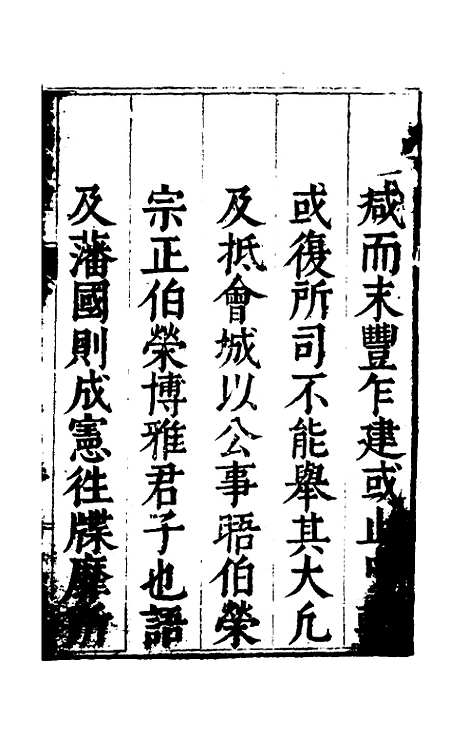 咸而末豐乍建或止
或復所司不能舉其大凢
及抵會城以公事晤伯榮
宗正伯榮博雅君子也語
及藩國則成憲徃牒靡所